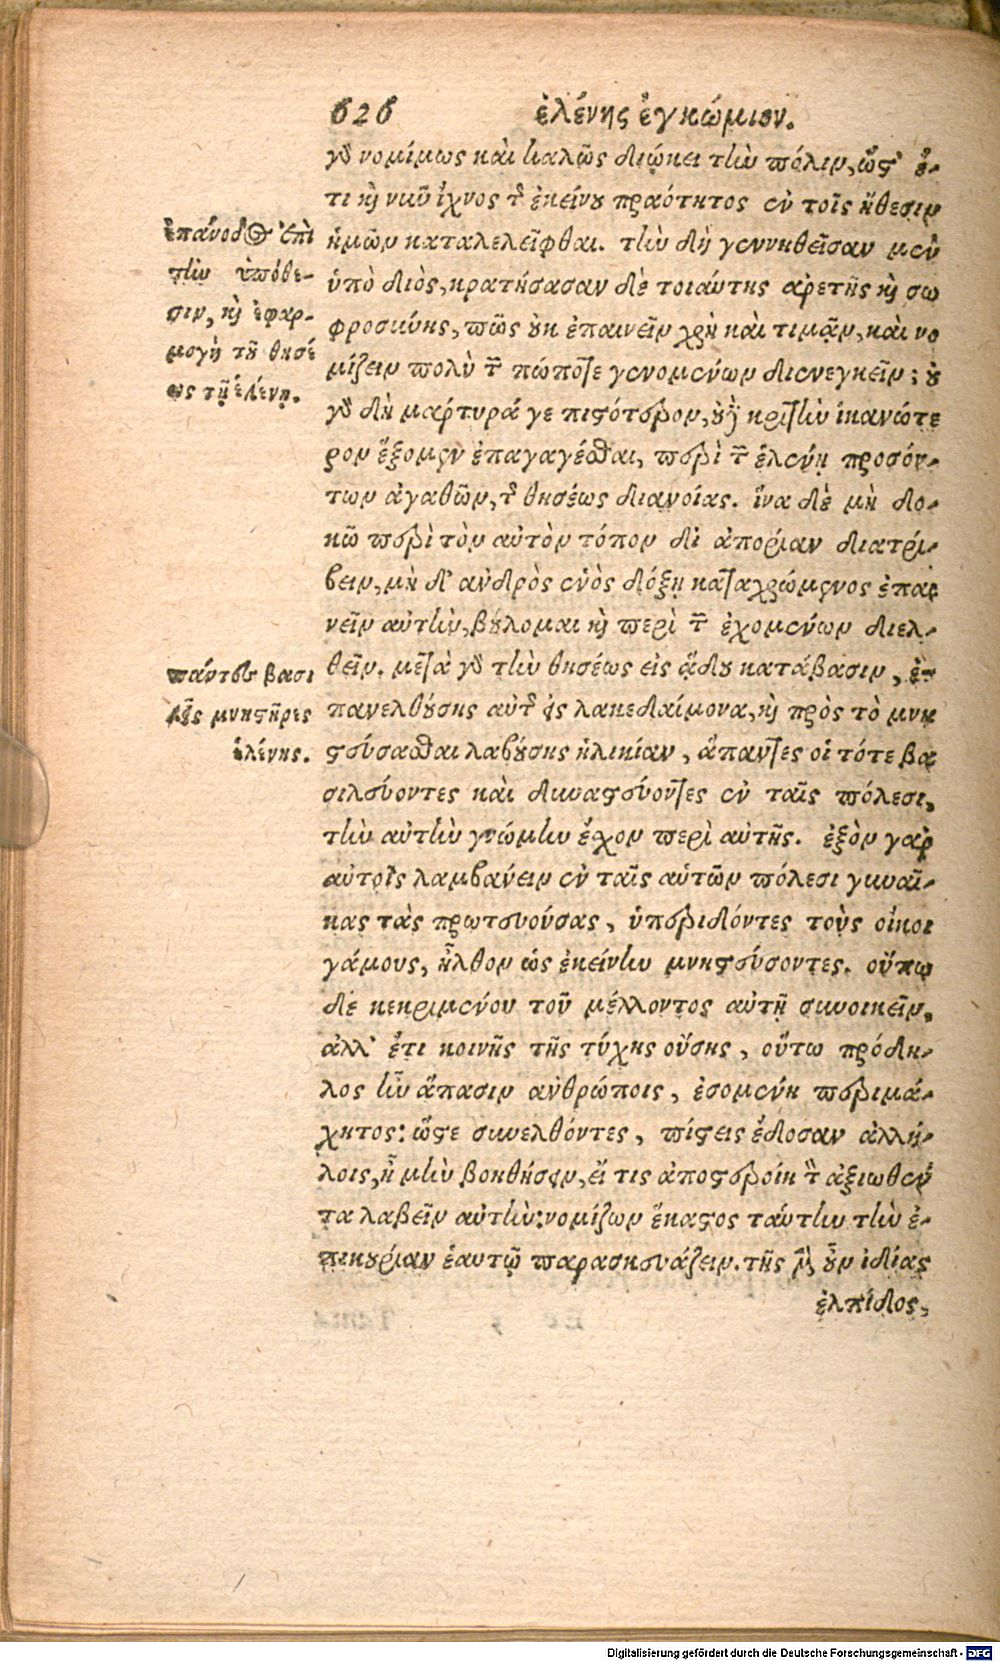 626 ἑλένης ἐγκώμιον.
γὸ νομίμως καὶ καλῶς διῴκει τὴν πόλιν, ὥςτ' ἔ-
τι καὶ νῦν ἴχνος τ͂ ἐκείνου πραότητος ἐν τοῖς ἤθεσιν
ἡμῶν καταλελεῖφθαι. τὴν δὴ γεννηθεῖσαν μὲν
ὑπὸ διὸς, κρατήσασαν δὲ τοιαύτης ἀρετῆς καὶ σω
φροσύνης, πῶς οὐκ ἐπαινεῖν χρὴ καὶ τιμᾶν, καὶ νο
μίζειν πολὺ τῶν πώποτε γενομένων διενεγκεῖν; οὐ
γὸ δὴ μάρτυρά γε πιστότερον, οὐδὲ κριτὴν ἱκανώτε
ρον ἕξομεν ἐπαγαγέσθαι, περὶ τῶν ἑλένῃ προσόν-
των ἀγαθῶν, τ͂ θησέως διανοίας. ἵνα δὲ μὴ δο-
κῶ περὶ τὸν αὐτὸν τόπον δι ἀπορίαν διατρί-
βειν, μὴ δ' ἀνδρὸς ἑνὸς δόξῃ καταχρώμενος ἐπαι
νεῖν αὐτὴν, βούλομαι καὶ περὶ τῶν ἐχομένων διελ-
θεῖν. μετὰ γὸ τὴν θησέως εἰς ᾅδου κατάβασιν, ἐ-
πανελθούσης αὐτ͂ εἰς λακεδαίμονα, καὶ πρὸς τὸ μνη
στεύσασθαι λαβούσης ἡλικίαν, ἅπαντες οἱ τότε βα
σιλεύοντες καὶ δυναστεύοντες ἐν ταῖς πόλεσι,
τὴν αὐτὴν γνώμην ἔχον περὶ αὐτῆς. ἐξὸν γὰρ
αὐτοῖς λαμβάνειν ἐν ταῖς αὑτῶν πόλεσι γυναῖ-
κας τὰς πρωτευούσας, ὑπεριδόντες τοὺς οἴκοι
γάμους, ἦλθον ὡς ἐκείνην μνηστεύσοντες. οὔπω
δὲ κεκριμένου τοῦ μέλλοντος αὐτῇ συνοικεῖν,
ἀλλ' ἔτι κοινῆς τῆς τύχης οὔσης, οὕτω πρόδη-
λος ἦν ἅπασιν ἀνθρώποις, ἐσομένη περιμά-
χητος: ὥστε συνελθόντες, πίστεις ἔδοσαν ἀλλή-
λοις, ἦ μὴν βοηθήσειν, εἴ τις ἀποστεροίη τ̀ ἀξιωθέν
τα λαβεῖν αὐτήν: νομίζων ἕκαστος ταύτην τὴν ἐ-
πικουρίαν ἑαυτῷ παρασκευάζειν. τῆς μὲν οὖν ἰδίας
ἐλπίδος,
ἐπάνοδος ἐπὶ
τὴν ὑπόθε-
σιν, καὶ ἐφαρ-
μογὴ τοῦ θησέ
ως τῇ ἑλένῃ.
πάντες βασι
λεῖς μνηστῆρες
ἑλένης.
Digitalisierung gefördert durch die Deutsche Forschungsgemeinschaft - DFG